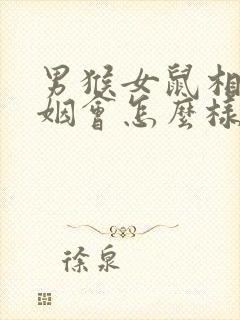 男猴女鼠相
姻會怎麼樣
徐泉